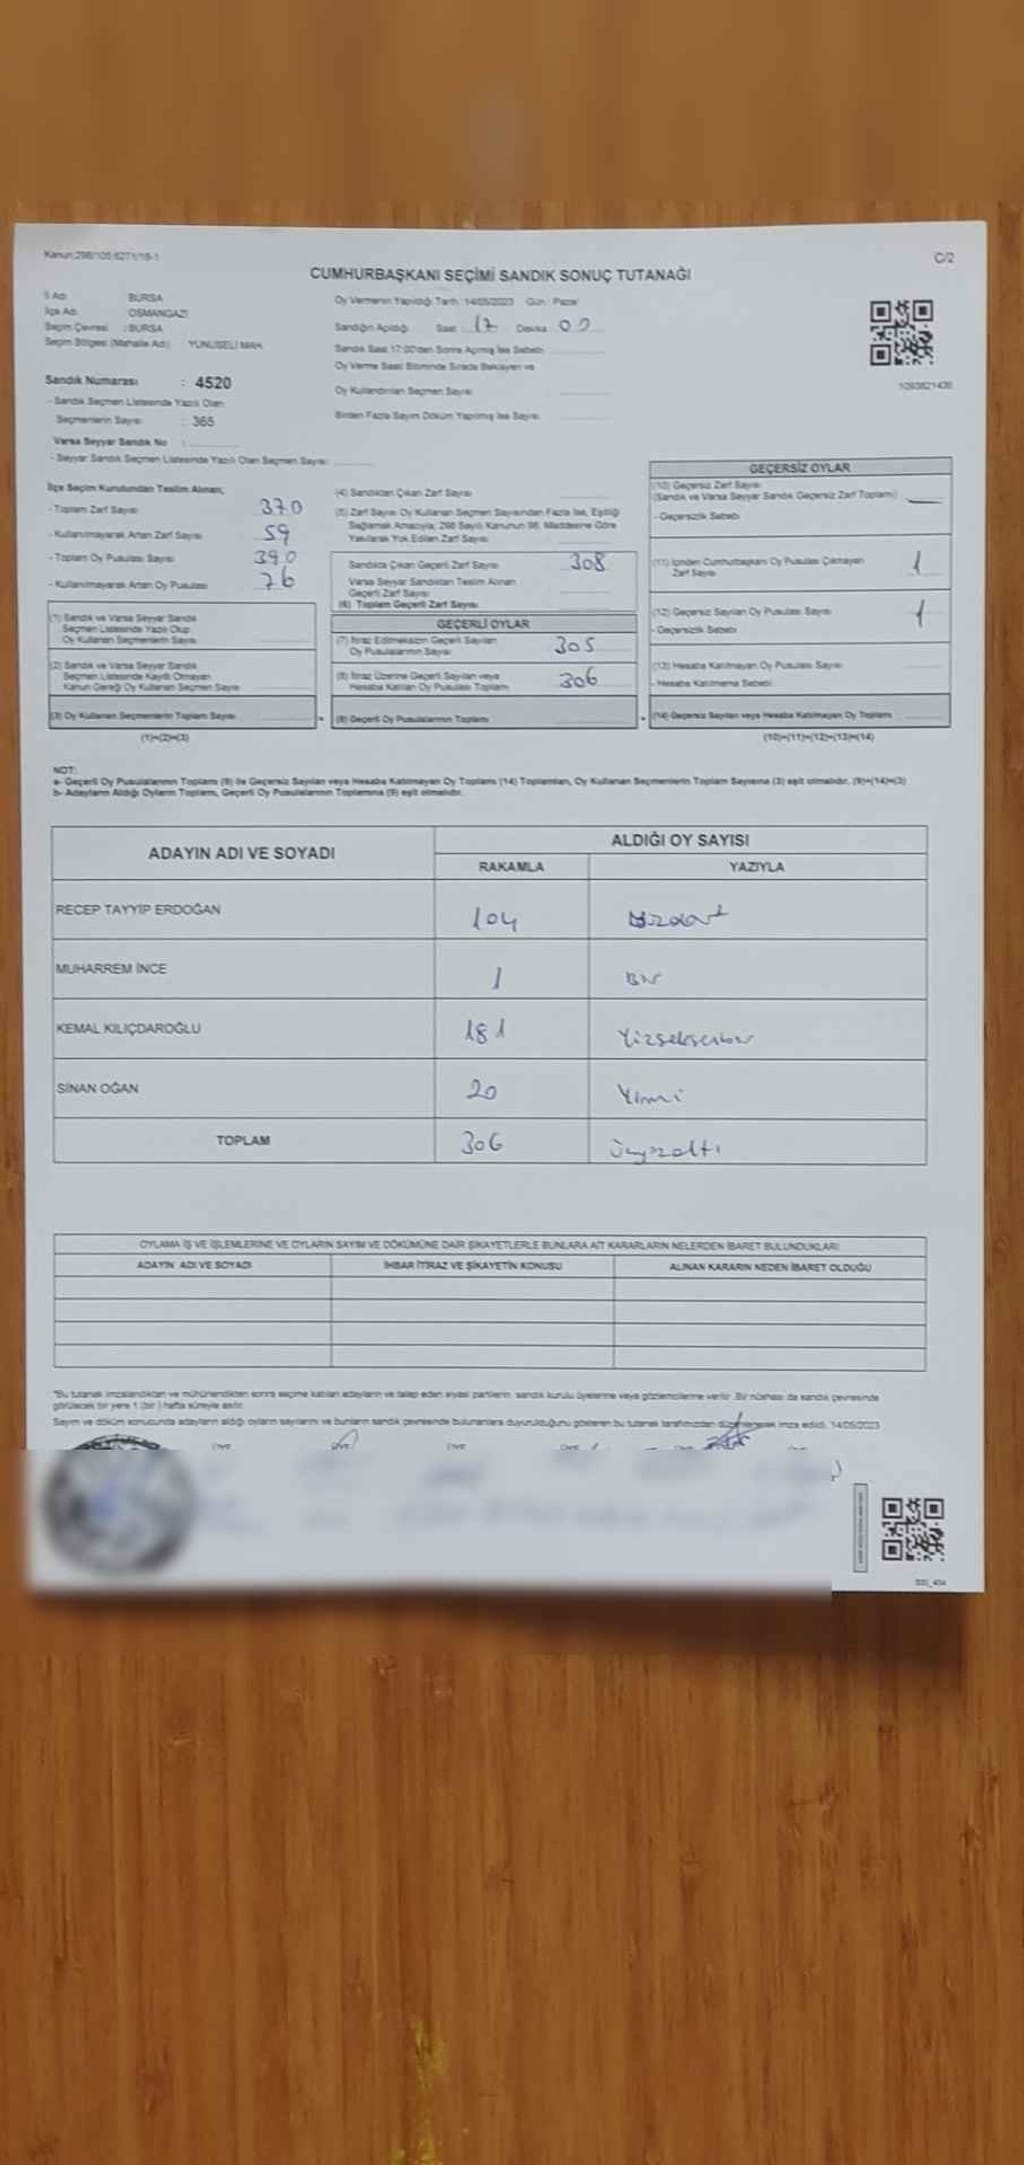 Kanun:298/105;6271/18-1
C/2
CUMHURBAŞKANI SEÇİMİ SANDIK SONUÇ TUTANAĞI
İl Adı : BURSA
İlçe Adı : OSMANGAZİ
Seçim Çevresi : BURSA
Seçim Bölgesi (Mahalle Adı) : YUNUSELİ MAH.
Oy Vermenin Yapıldığı Tarih : 14/05/2023 Gün : Pazar
Sandığın Açıldığı Saat 17 Dakika 00
Sandık Saat 17:00'den Sonra Açılmış İse Sebebi
Oy Verme Saati Bitiminde Sırada Bekleyen ve
Oy Kullandırılan Seçmen Sayısı
Birden Fazla Sayım Döküm Yapılmış İse Sayısı
1093821436
Sandık Numarası : 4520
- Sandık Seçmen Listesinde Yazılı Olan
Seçmenlerin Sayısı : 365
Varsa Seyyar Sandık No :
- Seyyar Sandık Seçmen Listesinde Yazılı Olan Seçmen Sayısı
İlçe Seçim Kurulundan Teslim Alınan;
- Toplam Zarf Sayısı 370
- Kullanılmayarak Artan Zarf Sayısı 59
- Toplam Oy Pusulası Sayısı 390
- Kullanılmayarak Artan Oy Pusulası 76
(1) Sandık ve Varsa Seyyar Sandık
Seçmen Listesinde Yazılı Olup
Oy Kullanan Seçmenlerin Sayısı
(2) Sandık ve Varsa Seyyar Sandık
Seçmen Listesinde Kayıtlı Olmayan
Kanun Gereği Oy Kullanan Seçmen Sayısı
(3) Oy Kullanan Seçmenlerin Toplam Sayısı
(1)+(2)=(3)
(4) Sandıktan Çıkan Zarf Sayısı
(5) Zarf Sayısı Oy Kullanan Seçmen Sayısından Fazla İse, Eşitliği
Sağlamak Amacıyla; 298 Sayılı Kanunun 98. Maddesine Göre
Yakılarak Yok Edilen Zarf Sayısı
Sandıkta Çıkan Geçerli Zarf Sayısı 308
Varsa Seyyar Sandıktan Teslim Alınan
Geçerli Zarf Sayısı
(6) Toplam Geçerli Zarf Sayısı
GEÇERLİ OYLAR
(7) İtiraz Edilmeksizin Geçerli Sayılan
Oy Pusulalarının Sayısı 305
(8) İtiraz Üzerine Geçerli Sayılan veya
Hesaba Katılan Oy Pusulası Toplamı 306
(9) Geçerli Oy Pusulalarının Toplamı
GEÇERSİZ OYLAR
(10) Geçersiz Zarf Sayısı
(Sandık ve Varsa Seyyar Sandık Geçersiz Zarf Toplamı)
- Geçersizlik Sebebi
(11) İçinden Cumhurbaşkanı Oy Pusulası Çıkmayan
Zarf Sayısı 1
(12) Geçersiz Sayılan Oy Pusulası Sayısı 1
- Geçersizlik Sebebi
(13) Hesaba Katılmayan Oy Pusulası Sayısı
- Hesaba Katılmama Sebebi
(14) Geçersiz Sayılan veya Hesaba Katılmayan Oy Toplamı
(10)+(11)+(12)+(13)=(14)
NOT:
a- Geçerli Oy Pusulalarının Toplamı (9) ile Geçersiz Sayılan veya Hesaba Katılmayan Oy Toplamı (14) Toplamları, Oy Kullanan Seçmenlerin Toplam Sayısına (3) eşit olmalıdır. (9)+(14)=(3)
b- Adayların Aldığı Oyların Toplamı, Geçerli Oy Pusulalarının Toplamına (9) eşit olmalıdır.
ADAYIN ADI VE SOYADI
ALDIĞI OY SAYISI
RAKAMLA YAZIYLA
RECEP TAYYİP ERDOĞAN 104
MUHARREM İNCE 1 Bir
KEMAL KILIÇDAROĞLU 181 Yüzseksenbir
SİNAN OĞAN 20 Yirmi
TOPLAM 306 üçyüzaltı
OYLAMA İŞ VE İŞLEMLERİNE VE OYLARIN SAYIM VE DÖKÜMÜNE DAİR ŞİKAYETLERLE BUNLARA AİT KARARLARIN NELERDEN İBARET BULUNDUKLARI
ADAYIN ADI VE SOYADI İHBAR İTİRAZ VE ŞİKAYETİN KONUSU ALINAN KARARIN NEDEN İBARET OLDUĞU
"Bu tutanak imzalandıktan ve mühürlendikten sonra seçime katılan adayların ve talep eden siyasi partilerin, sandık kurulu üyelerine veya gözlemcilerine verilir. Bir nüshası da sandık çevresinde
görülecek bir yere 1 (bir ) hafta süreyle asılır.
Sayım ve döküm sonucunda adayların aldığı oyların sayılarını ve bunların sandık çevresinde bulunanlara duyurulduğunu gösteren bu tutanak tarafımızdan düzenlenerek imza edildi. 14/05/2023
ÜYE ÜYE ÜYE ÜYE ÜYE